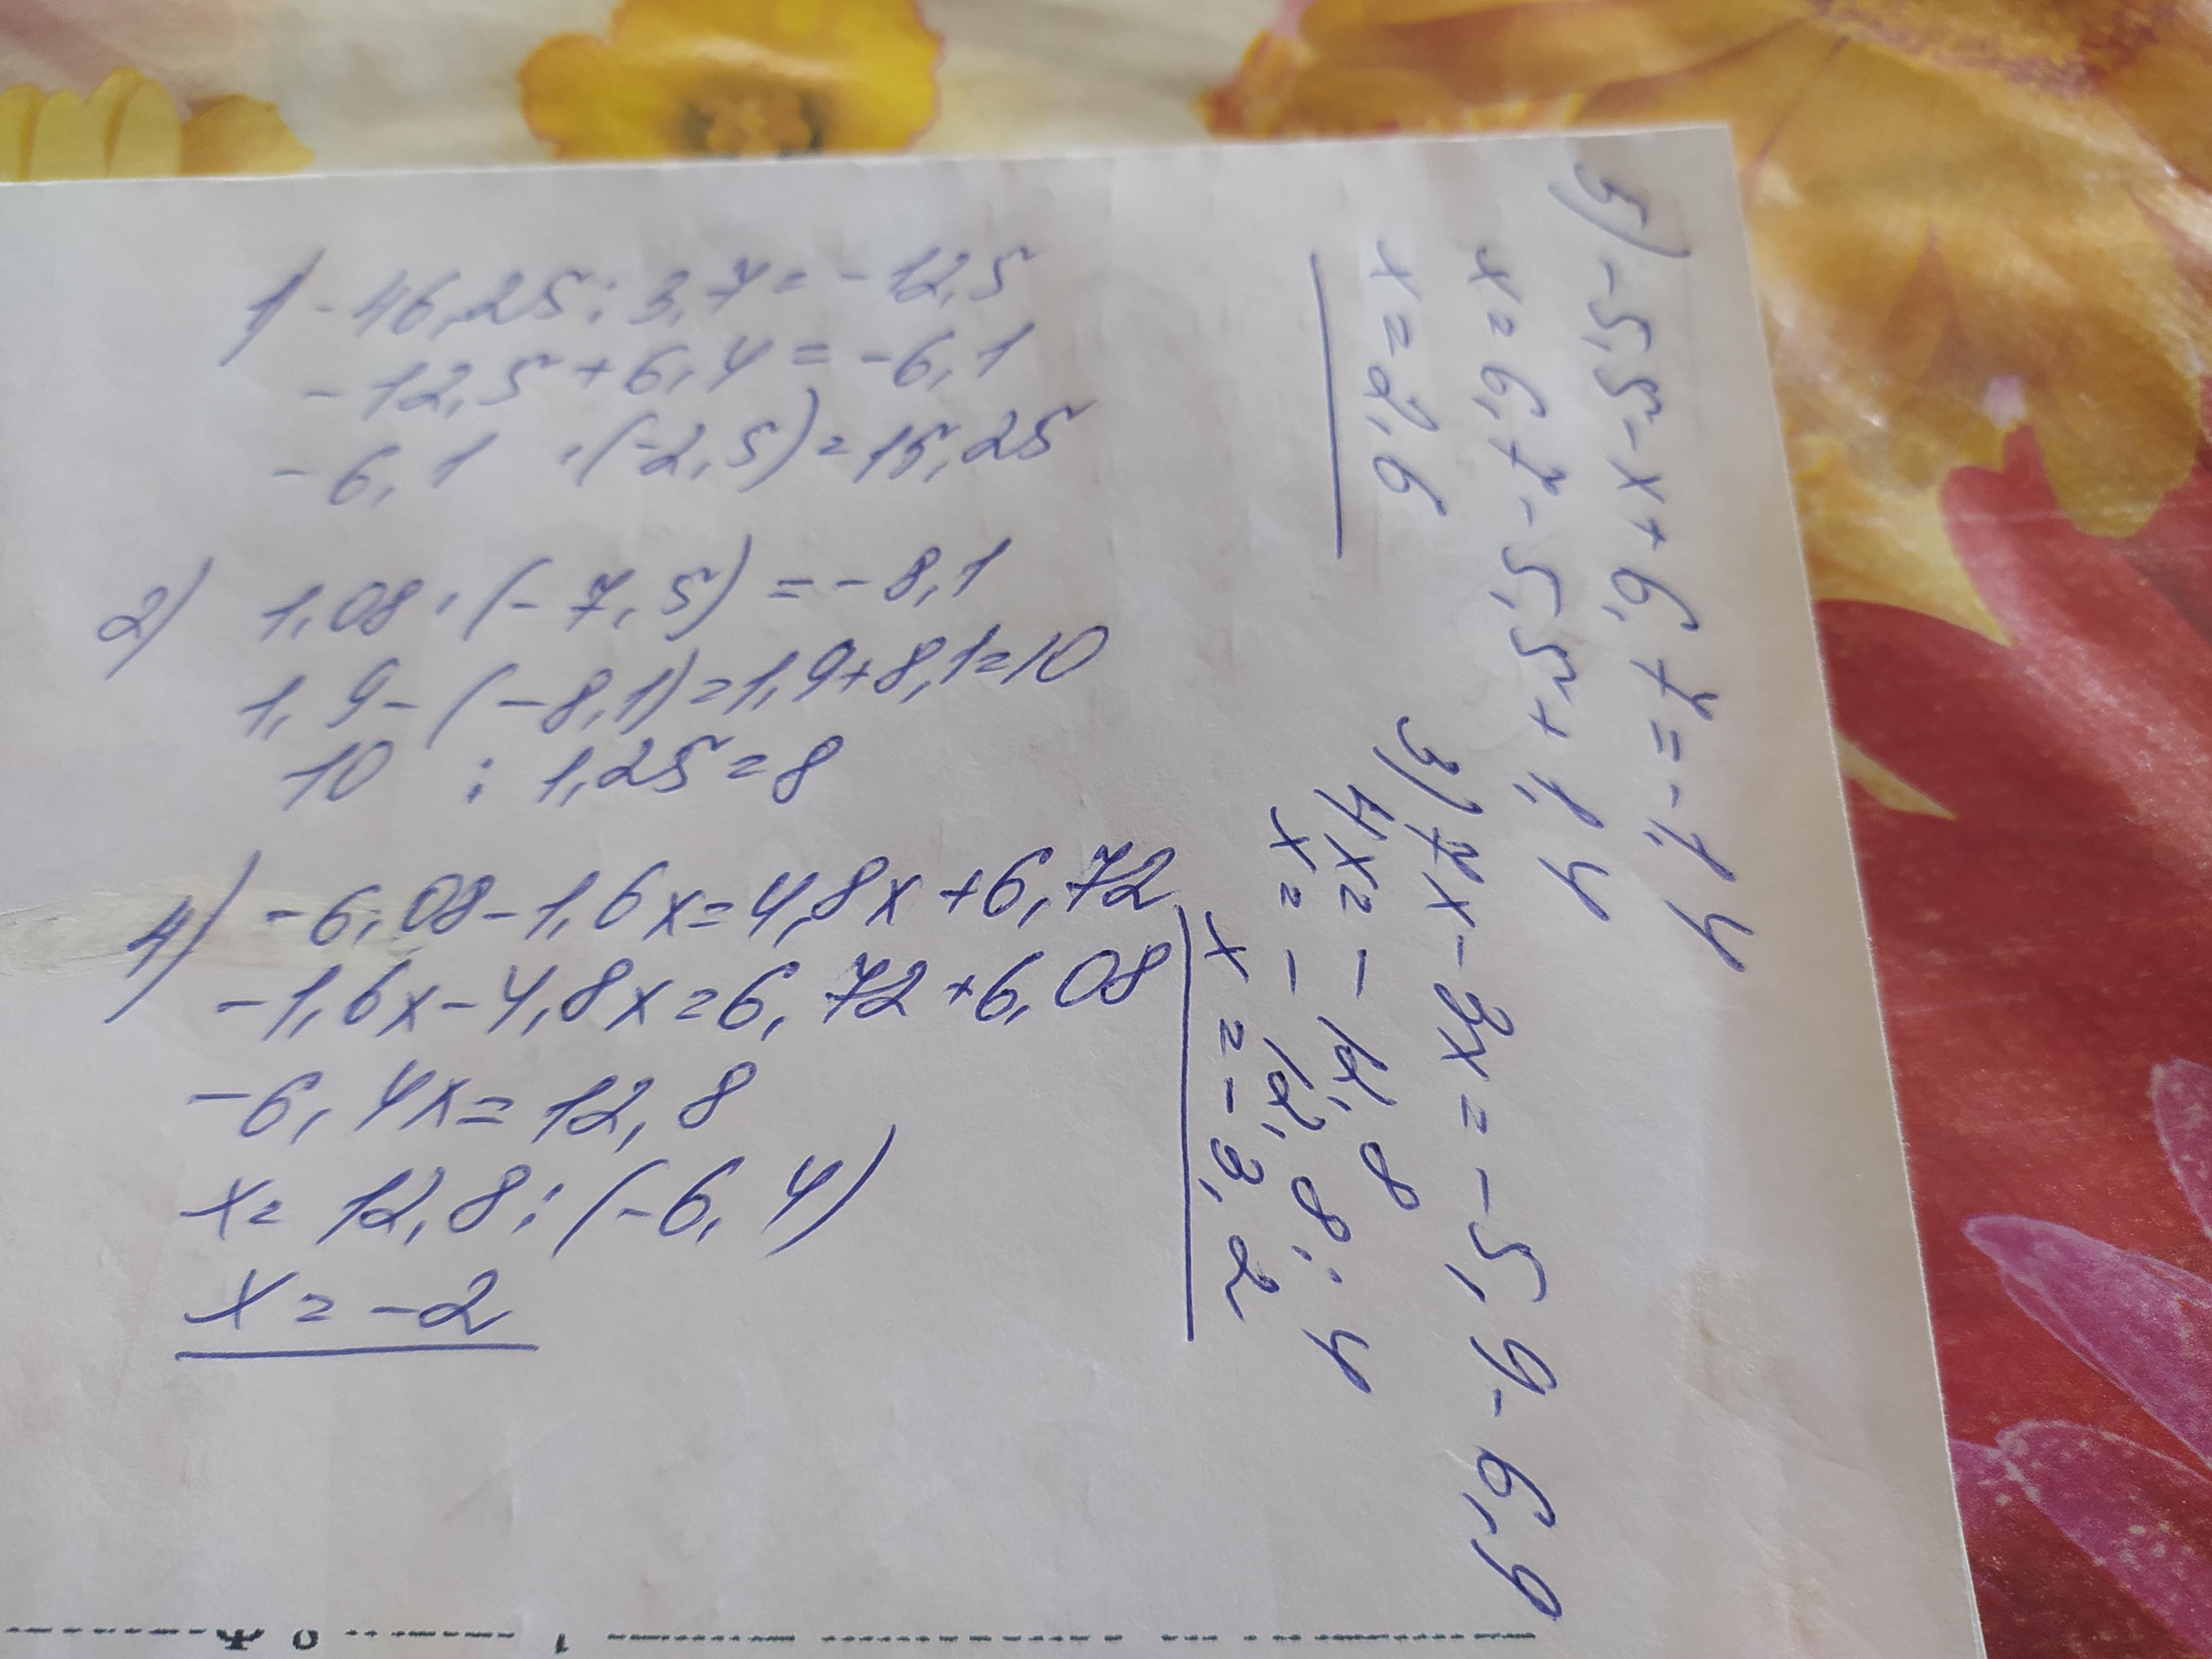 1) -46,25:3,7=-12,5
-12,5+6,4=-6,1
-6,1 ·(-2,5)=15,25
2) 1,08·(-7,5)=-8,1
1,9-(-8,1)=1,9+8,1=10
10 : 1,25=8
4) -6,08-1,6x=4,8x+6,72
-1,6x-4,8x=6,72+6,08
-6,4x=12,8
x=12,8:(-6,4)
x=-2
5) -5,5-x+6,7=-1,4
x=6,7-5,5+1,4
x=2,6
3) 7x-3x=-5,9-6,9
4x=-12,8
x=-12,8:4
x=-3,2